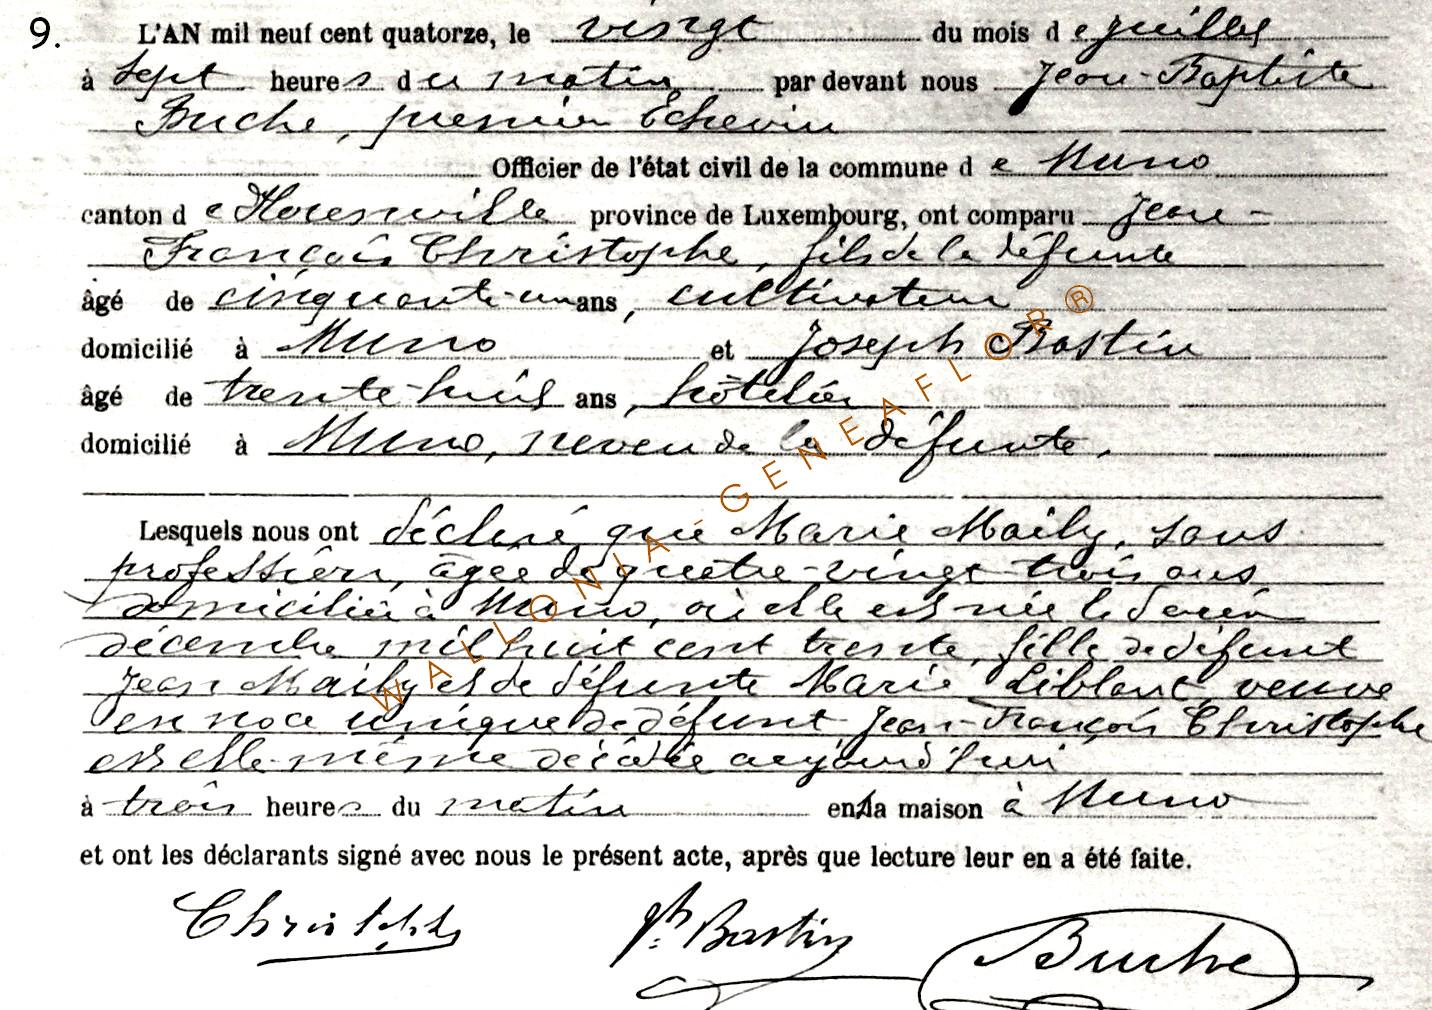 9. L'AN mil neuf cent quatorze, le vingt du mois de juillet
à sept heures du matin par devant nous Jean-Baptiste
Buche, premier Echevin
Officier de l'état civil de la commune de Muno
canton de Florenville province de Luxembourg, ont comparu Jean-
François Christophe, fils de la défunte
âgé de cinquante-un ans, cultivateur
domicilié à Muno et Joseph Bastin
âgé de trente-huit ans, hôtelier
domicilié à Muno, neveu de la défunte.
Lesquels nous ont déclaré que Marie Maily, sans
profession, âgée de quatre-vingt trois ans
domiciliée à Muno, où elle est née le
décembre mil huit cent trente, fille de défunt
Jean Maily et de défunte Marie Liblanc, veuve
en noce unique de défunt Jean-François Christophe
est elle-même décédée aujourd'hui
à trois heures du matin en la maison à Muno
et ont les déclarants signé avec nous le présent acte, après que lecture leur en a été faite.
Christophe Jh. Bastin Buche
WALLONIA-GENEAFLOR®